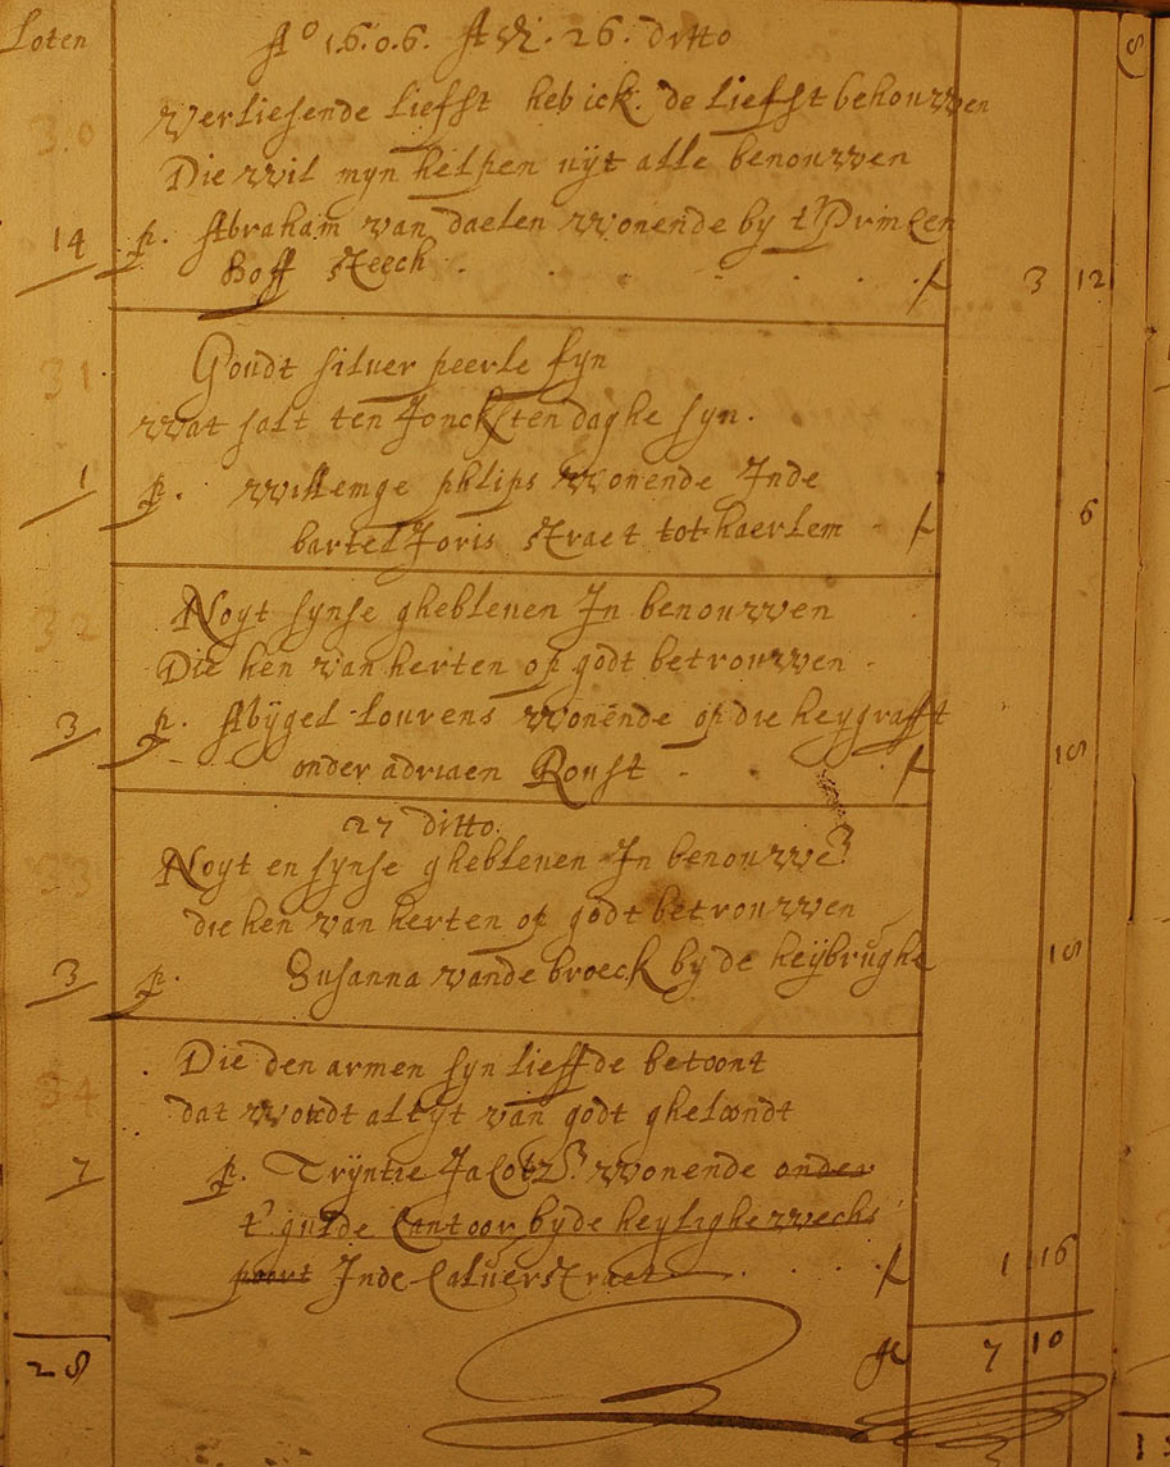 Loten
A° 1.6.0.6. Adi. 26. ditto
30
Verliesende liefst heb ick. de liefst behouwen
Die wil myn helpen uÿt alle benouwen
14 p. Abraham van daelen wonende by t'Princen
hoff steech . . . . . . f 3 12
31
Goudt siluer peerle fyn
wat salt ten Joncksten daghe syn.
1 p. willemge phlips wonende Inde
bartel Joris straet tot haerlem - f 6
32
Noyt synse ghebleuen In benouwen
Die hen van herten op godt betrouwen -
3 p. Abÿgel louvens wonende op die heygrafft
onder adriaen Roust - . . f 18
27 ditto.
33
Noyt en synse ghebleuen In benouwe
die hen van herten op godt betrouwen
3 p. Susanna vande broeck by de heÿbrughe 18
34
Die den armen syn lieffde betoont
dat wordt altyt van godt gheloondt
7 p. Trÿntie Jacobz wonende onder
t'gulde Cantoor byde heylighe wechs
poort Inde Caluerstraet . . . . f 1 16
28 7 10